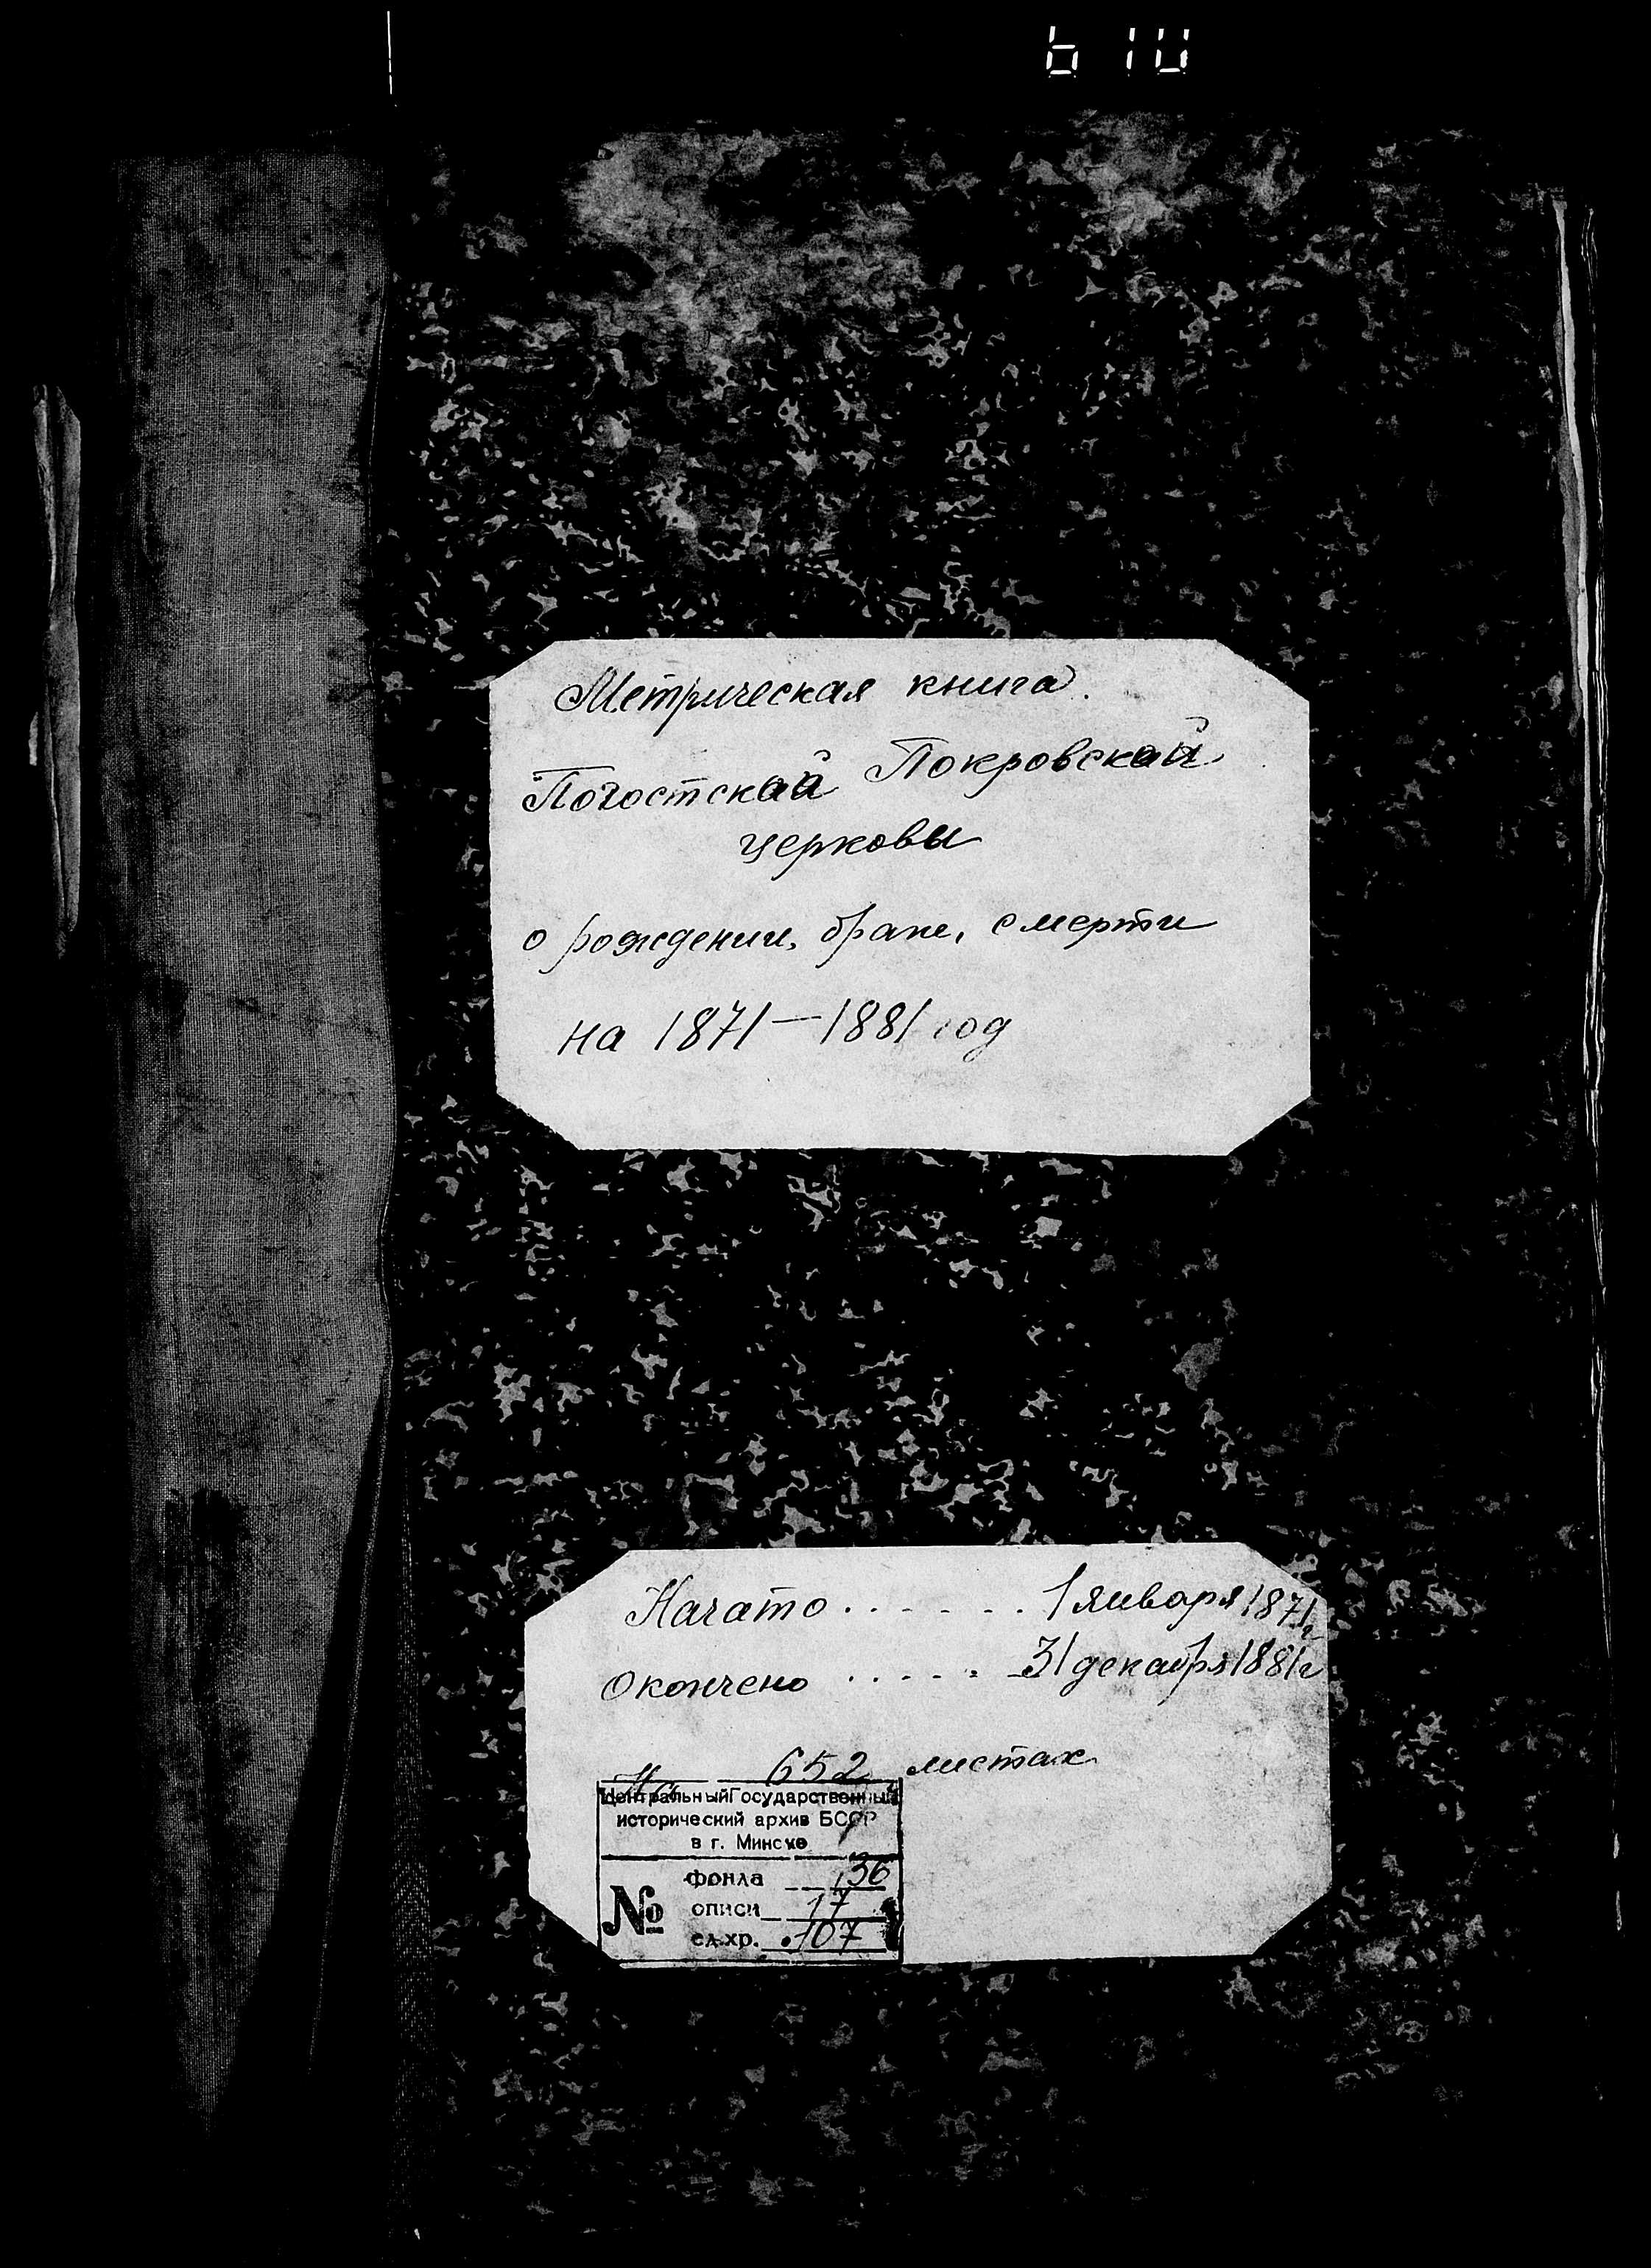 Метрическая книга.
Погостской Покровской
церковы
о рождении, браке, смерти
на 1871 — 1881 год
Начато . . . . . . . 1 января 1871 г
Окончено . . . . . 31 декабря 1881 г
На 652 листах
Центральный Государственный
исторический архив БССР
в г. Минске
№
фонда 136
описи 17
ед.хр. 107